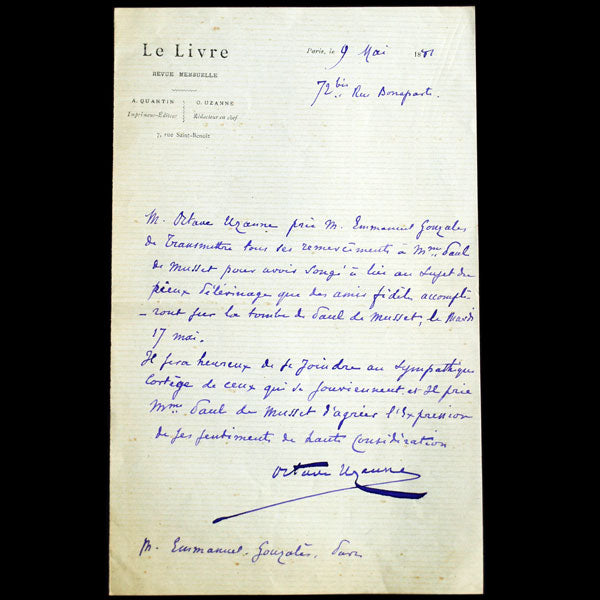 Le Livre
REVUE MENSUELLE
A. QUANTIN
Imprimeur-Éditeur
O. UZANNE
Rédacteur en chef
7, rue Saint-Benoît
Paris, le 9 Mai 1881
72 bis Rue Bonaparte
M. Octave Uzanne prie M. Emmanuel Gonzales
de Transmettre tous ses remerciments à Mme Paul
de Musset pour avoir songé à lui au Sujet du
pieux Pélérinage que des amis fidèles accompli-
-ront sur la tombe de Paul de Musset, le Mardi
17 mai.
Il sera heureux de se Joindre au Sympathique
Cortège de ceux qui se souviennent et Il prie
Mme Paul de Musset d'agréer l'Expression
de ses sentiments de haute Considération
Octave Uzanne
M. Emmanuel Gonzalès. Paris